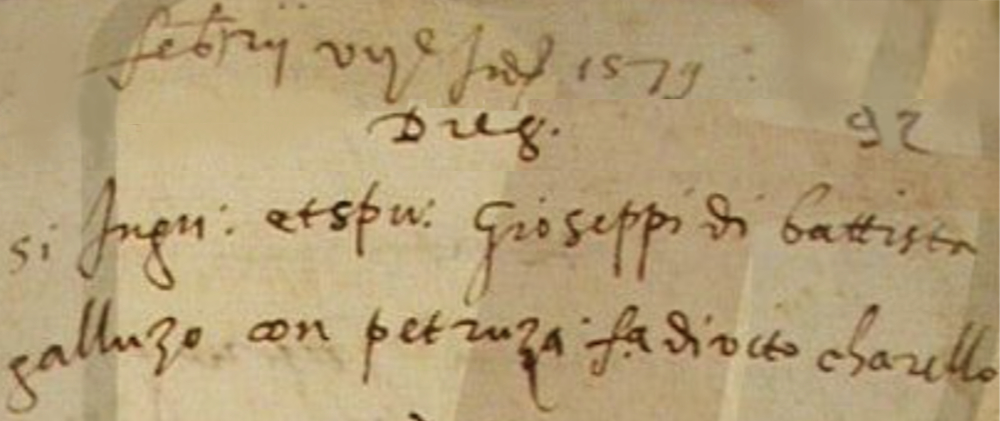 februarij vij Ind 1579
D reg.
92
si Ingu: et spu: Gioseppi di battista
galluzo con petruza f.a di vito charello